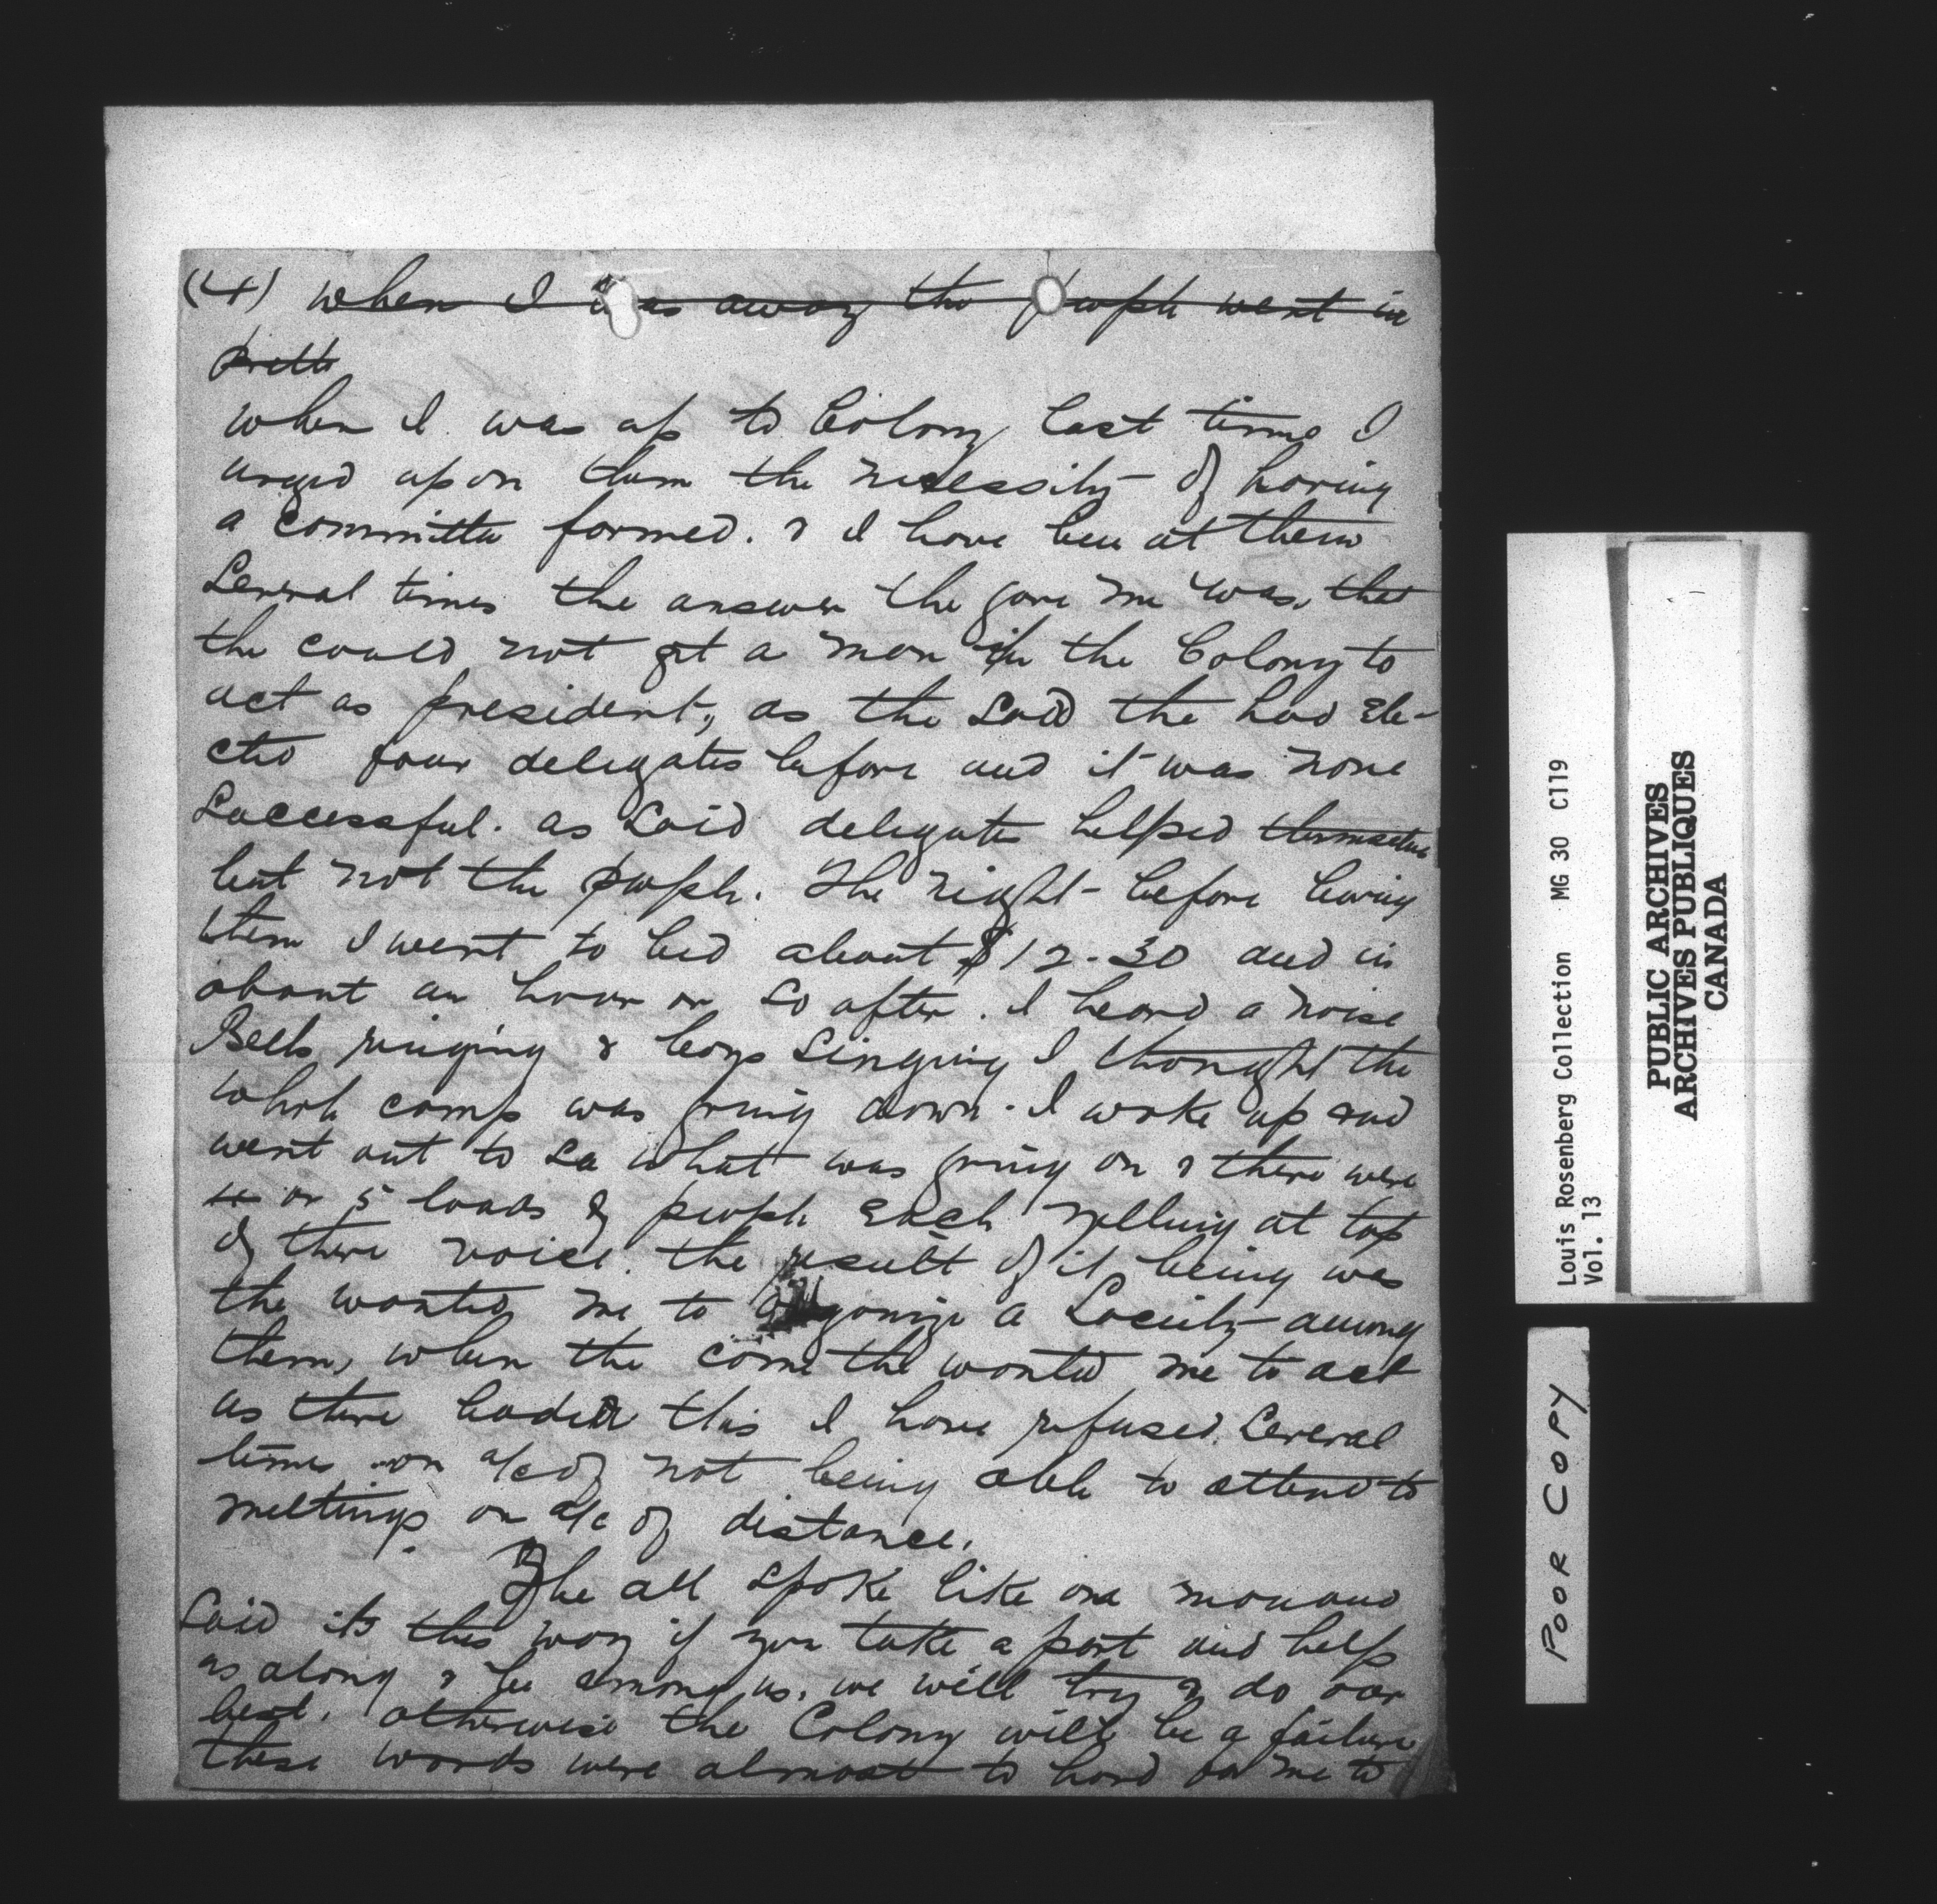 (4) when I was away the people went in
prette
when I was up to Colony last time I
urged upon them the necessity of having
a committee formed. & I have been at them
several times the answer the gave me was, that
the could not get a man in the Colony to
act as president, as the said the had ele-
cted four delegates before and it was none
successful. as said delegates helped themselves
but not the people. The night before leaving
them I went to bed about 12-30 and in
about an hour or so after. I heard a noise
Bells ringing & boys singing I thought the
whole camp was going down. I woke up and
went out to see what was going on & there were
4 or 5 loads of people each yelling at top
of there voice. the result of it being was
the wanted me to organize a Society among
them, when the come the wanted me to act
as there leader this I have refused several
times on a/c of not being able to attend to
meetings on a/c of distance.
The all spoke like one man and
said its this way if you take a part and help
us along & be among us, we will try & do our
best. otherwise the Colony will be a failure
these words were almost to hard on me to
Louis Rosenberg Collection MG 30 C119
Vol. 13
PUBLIC ARCHIVES
ARCHIVES PUBLIQUES
CANADA
POOR COPY